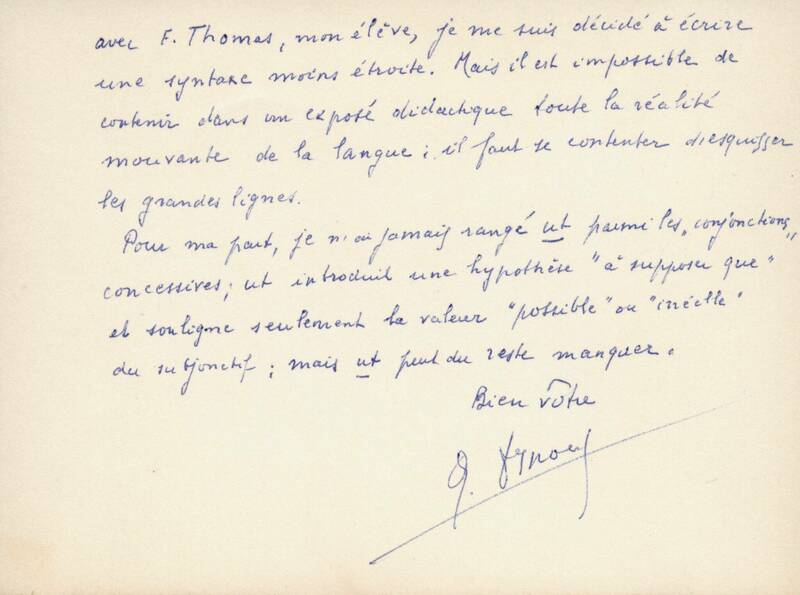 avec F. Thomas, mon élève, je me suis décidé à écrire
une syntaxe moins étroite. Mais il est impossible de
contenir dans un exposé didactique toute la réalité
mouvante de la langue ; il faut se contenter d'esquisser
les grandes lignes.
Pour ma part, je n'ai jamais rangé ut parmi les „conjonctions„
concessives ; ut introduit une hypothèse "à supposer que"
et souligne seulement la valeur "possible" ou "irréelle"
du subjonctif ; mais ut peut du reste manquer.
Bien vôtre